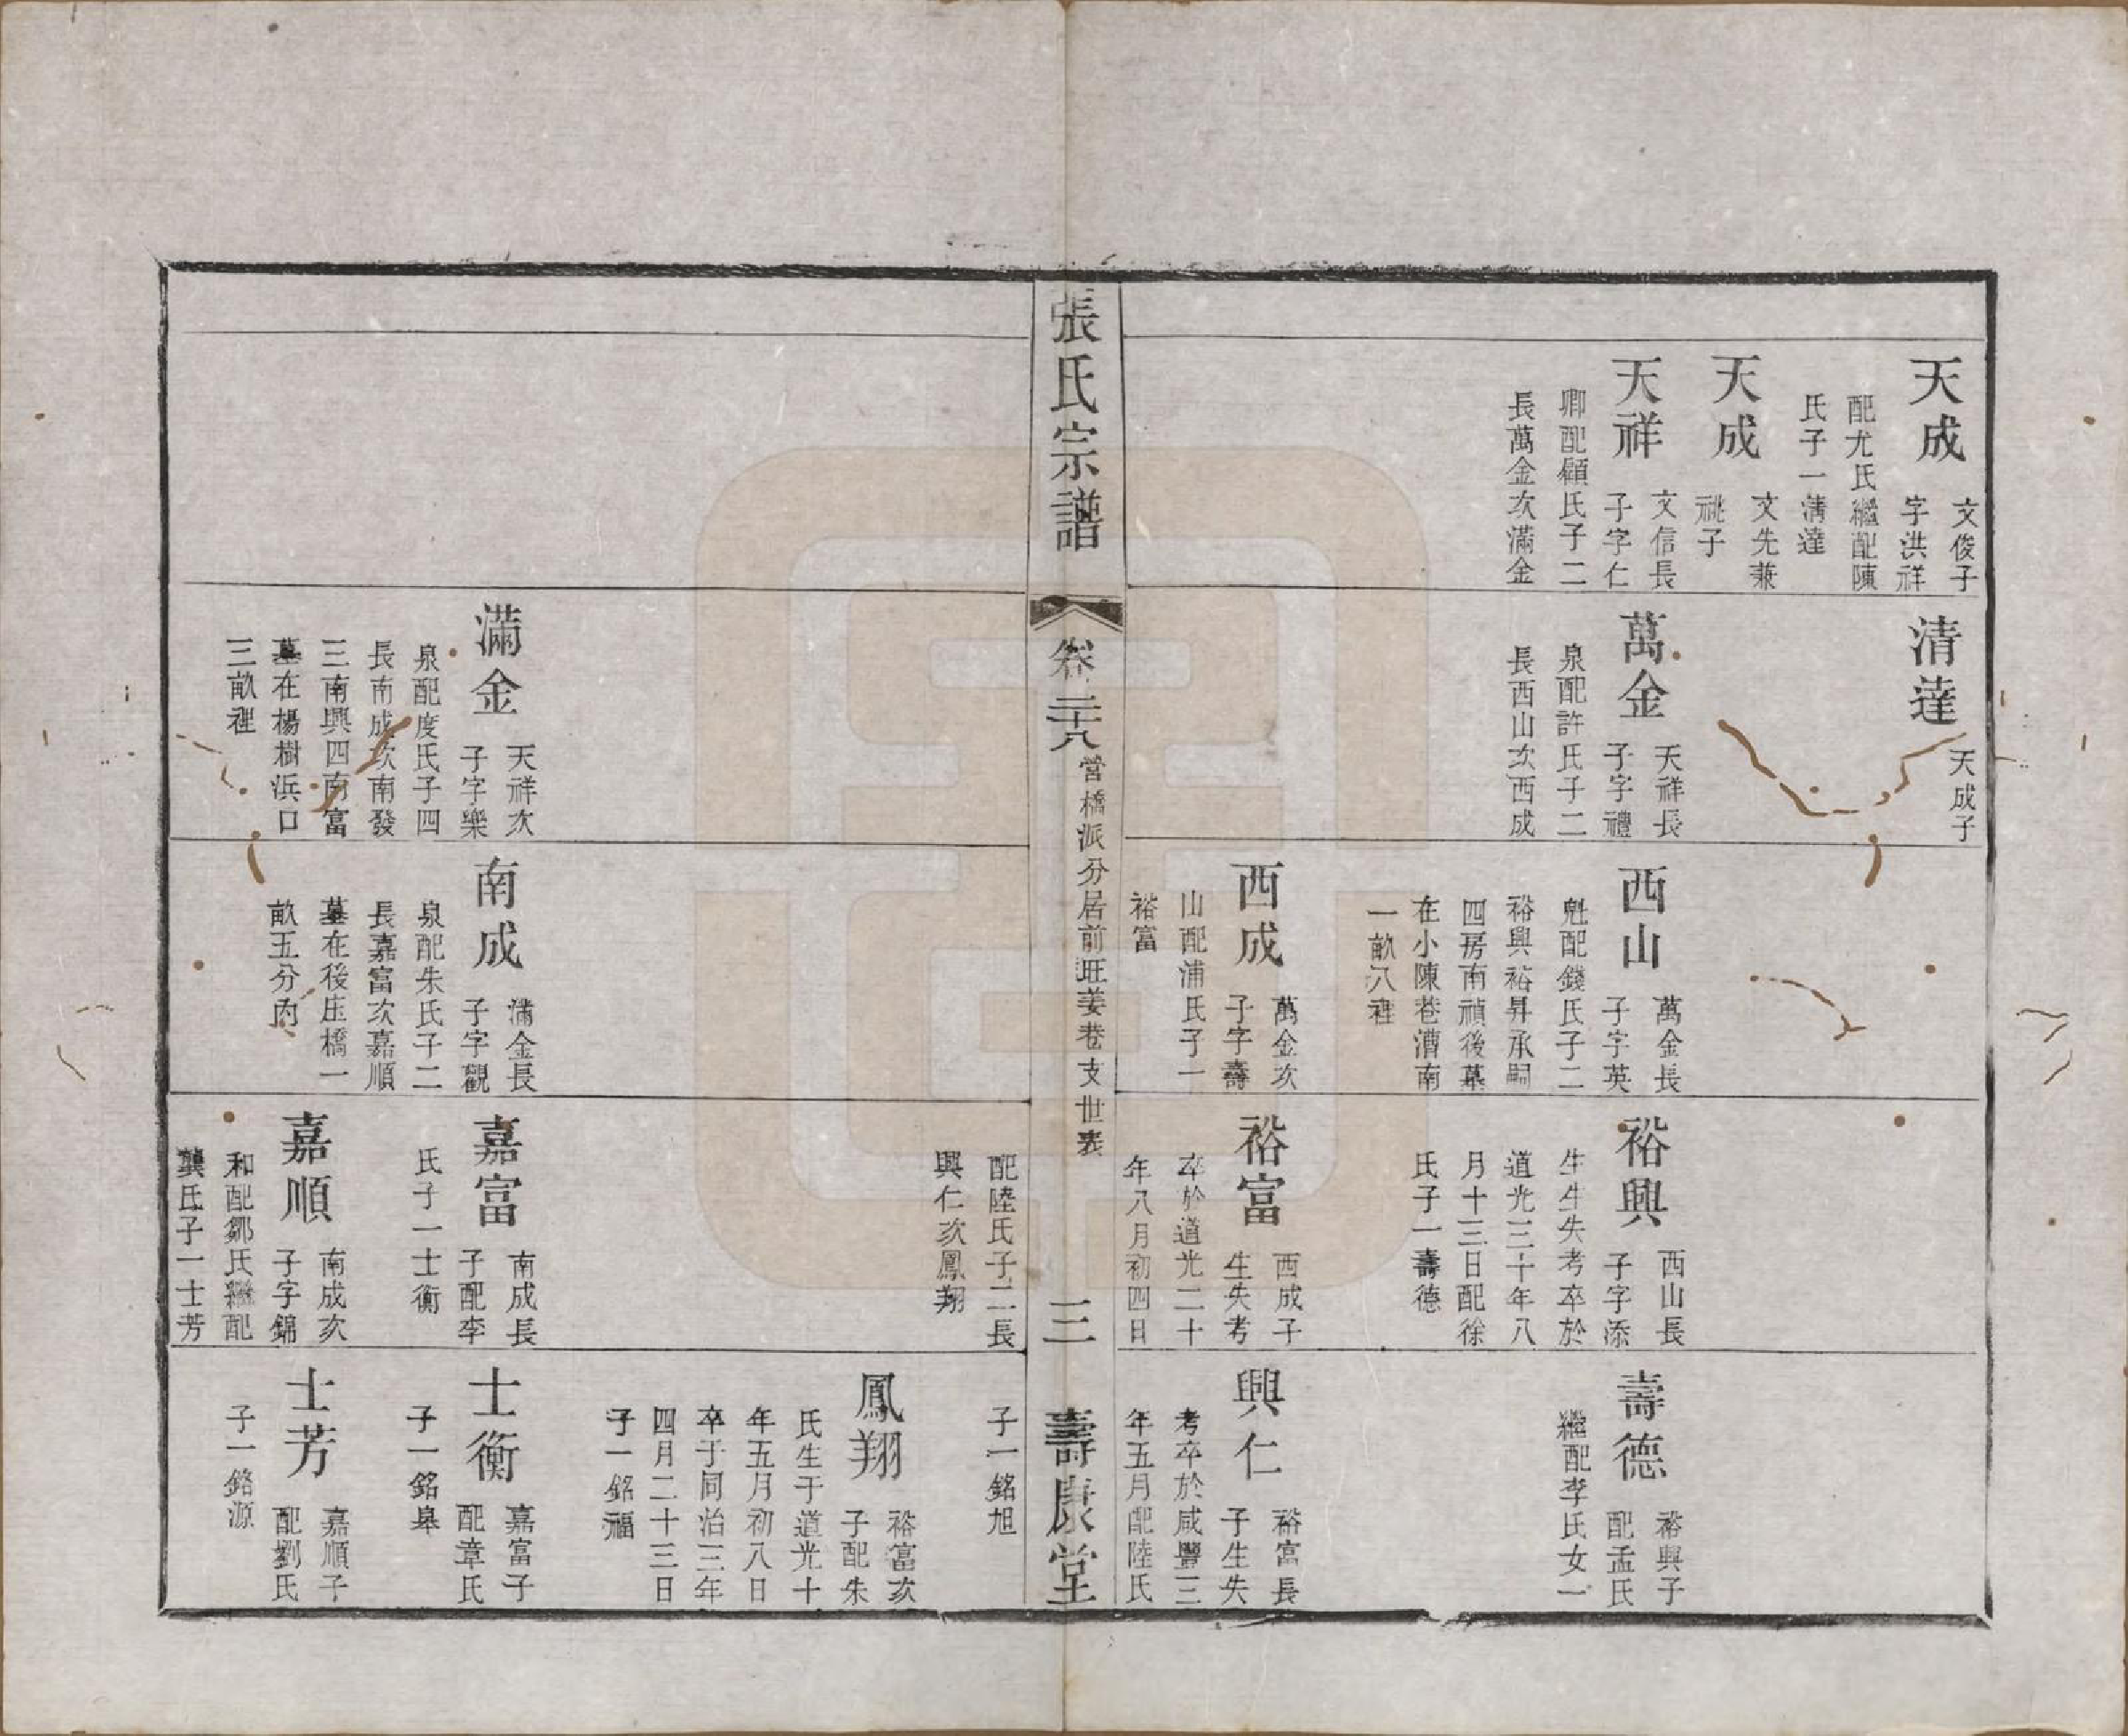 天成
文俊子
字洪祥
配尤氏繼配陳
氏子一清達
天成
文先兼
祧子
天祥
文信長
子字仁
卿配顧氏子二
長萬金次滿金
清達
天成子
萬金
天祥長
子字禮
泉配許氏子二
長西山次西成
西山
萬金長
子字英
魁配錢氏子二
裕興裕昇承嗣
四房南禎後墓
在小陳巷漕南
一畝八裡
西成
萬金次
子字壽
山配浦氏子一
裕富
裕興
西山長
子字添
生生失考卒於
道光三十年八
月十三日配徐
氏子一壽德
裕富
西成子
生失考
卒於道光二十
年八月初四日
壽德
裕興子
配孟氏
繼配李氏女一
興仁
裕富長
子生失
考卒於咸豐三
年五月配陸氏
張氏宗譜
卷二十八
營橋派分居前旺姜巷支世表
三
壽康堂
滿金
天祥次
子字樂
泉配度氏子四
長南成次南發
三南興四南富
墓在楊樹浜口
三畝裡
南成
滿金長
子字觀
泉配朱氏子二
長嘉富次嘉順
墓在後庄橋一
畝五分內
配陸氏子二長
興仁次鳳翔
嘉富
南成長
子配李
氏子一士衡
嘉順
南成次
子字錦
和配鄒氏繼配
龔氏子一士芳
子一銘旭
鳳翔
裕富次
子配朱
氏生于道光十
年五月初八日
卒于同治三年
四月二十三日
子一銘福
士衡
嘉富子
配章氏
子一銘皋
士芳
嘉順子
配劉氏
子一銘源